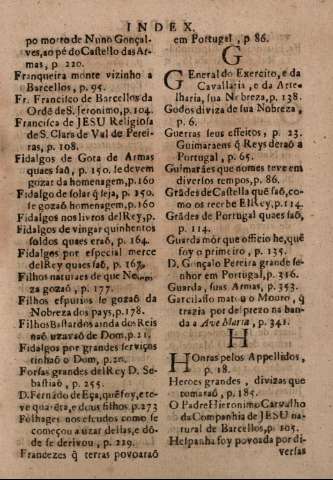 INDEX.
po morto de Nuno Gonçal-
ves, ao pé do Castello das Ar-
mas, p. 220.
Franqueira monte vizinho a
Barcellos, p. 95.
Fr. Francisco de Barcellos da
Ordé de S. Jeronimo, p. 104.
Francisca de JESU Religiosa
de S. Clara de Val de Perei-
ras, p. 108.
Fidalgos de Gota de Armas
quaes saõ, p. 150. se devem
gozar da homenagem, p. 160
Fidalgo de solar q̃ seja, p. 150.
se gozaõ homenagem, p. 160
Fidalgos nos livros del Rey, p.
Fidalgos de vingar quinhentos
soldos quaes eraõ, p. 164.
Fidalgos por especial merce
del Rey quaes saõ, p. 167.
Filhos naturaes de que
za gozaõ, p. 177.
Filhos espurios se gozaõ da
Nobreza dos pays, p. 178.
Filhos Bastardos ainda dos Reis
naõ uzavaõ de Dom, p. 21.
Fidalgos por grandes serviços
tinhaõ o Dom, p. 20.
Forsas grandes del Rey D. Se-
bastiaõ, p. 255.
D. Fernãdo de Eça, quẽ foy, e te-
ve quarẽta, e dous filhos, p. 273
Folhages nos escudos como se
começou a uzar dellas, e dõ-
de se derivou, p. 229.
Francezes q̃ terras povoaraõ
em Portugal, p 86.
G
General do Exercito, e da
Cavallaria, e da Arte-
lharia, sua Nobreza, p. 138.
Godos diviza de sua Nobreza,
p. 6.
Guerras seus effeitos, p. 23.
Guimaraens q̃ Reys deraõ a
Portugal, p. 65.
Guimarães que nomes teve em
diversos tempos, p. 86.
Grãdes de Castella que saõ, co-
mo os recebe El Rey, p. 114.
Grãdes de Portugal quaes saõ,
p. 114.
Guarda mór que officio he, quẽ
foy o primeiro, p. 135.
D. Gonçalo Pereira grande se-
nhor em Portugal, p. 316.
Guarda, suas Armas, p. 353.
Garcilasso matou o Mouro, q̃
trazia por desprezo na ban-
da a Ave Maria, p. 341.
H
Honras pelos Appellidos,
p. 18.
Heroes grandes, divizas que
tomaraõ, p. 185.
O Padre Hieronimo Carvalho
da Companhia de JESU na-
tural de Barcellos, p. 105.
Hespanha foy povoada por di-
versas